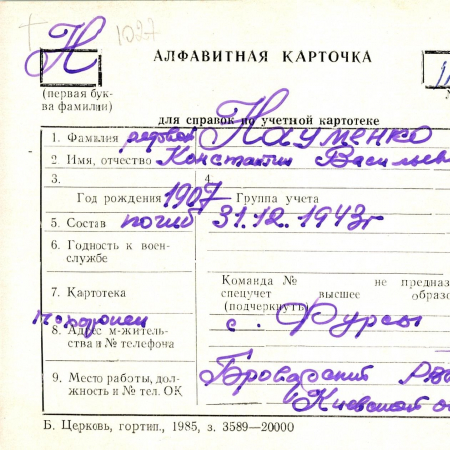 Н 1027
АЛФАВИТНАЯ КАРТОЧКА
(первая бук-
ва фамилии)
для справок по учетной картотеке
1. Фамилия рядовой Науменко
2. Имя, отчество Константин Василье
3. 4.
Год рождения 1907 Группа учета
5. Состав погиб 31.12.1943г
6. Годность к воен-
службе
Команда № не предназ
7. Картотека спецучет высшее образо
(подчеркнуть)
похоронен с. Фурсы
8. Адрес м-житель-
ства и № телефона
9. Место работы, дол-
жность и № тел. ОК
Броварский
Киевской о
Б. Церковь, гортип., 1985, з. 3589—20000